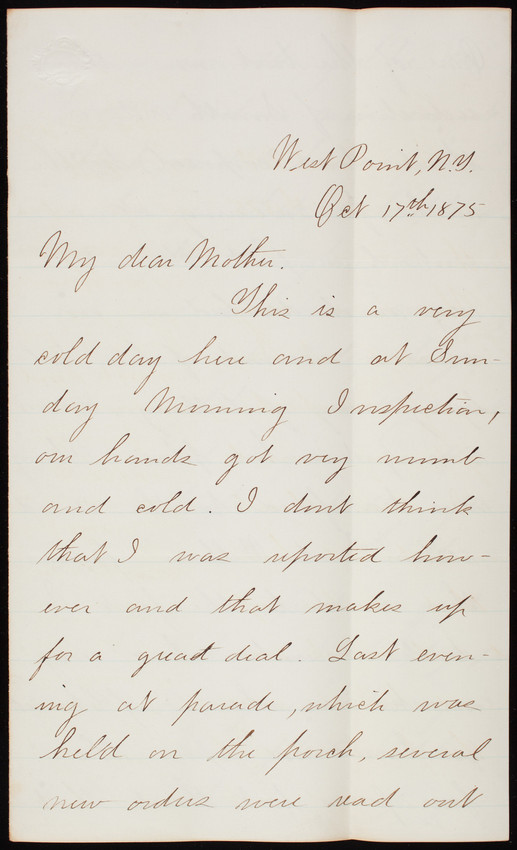 West Point, N.Y.
Oct 17th 1875
My dear Mother.
This is a very
cold day here and at Sun-
day Morning Inspection,
our hands got very numb
and cold. I dont think
that I was reported how-
ever and that makes up
for a great deal. Last even-
ing at parade, which was
held on the porch, several
new orders were read out